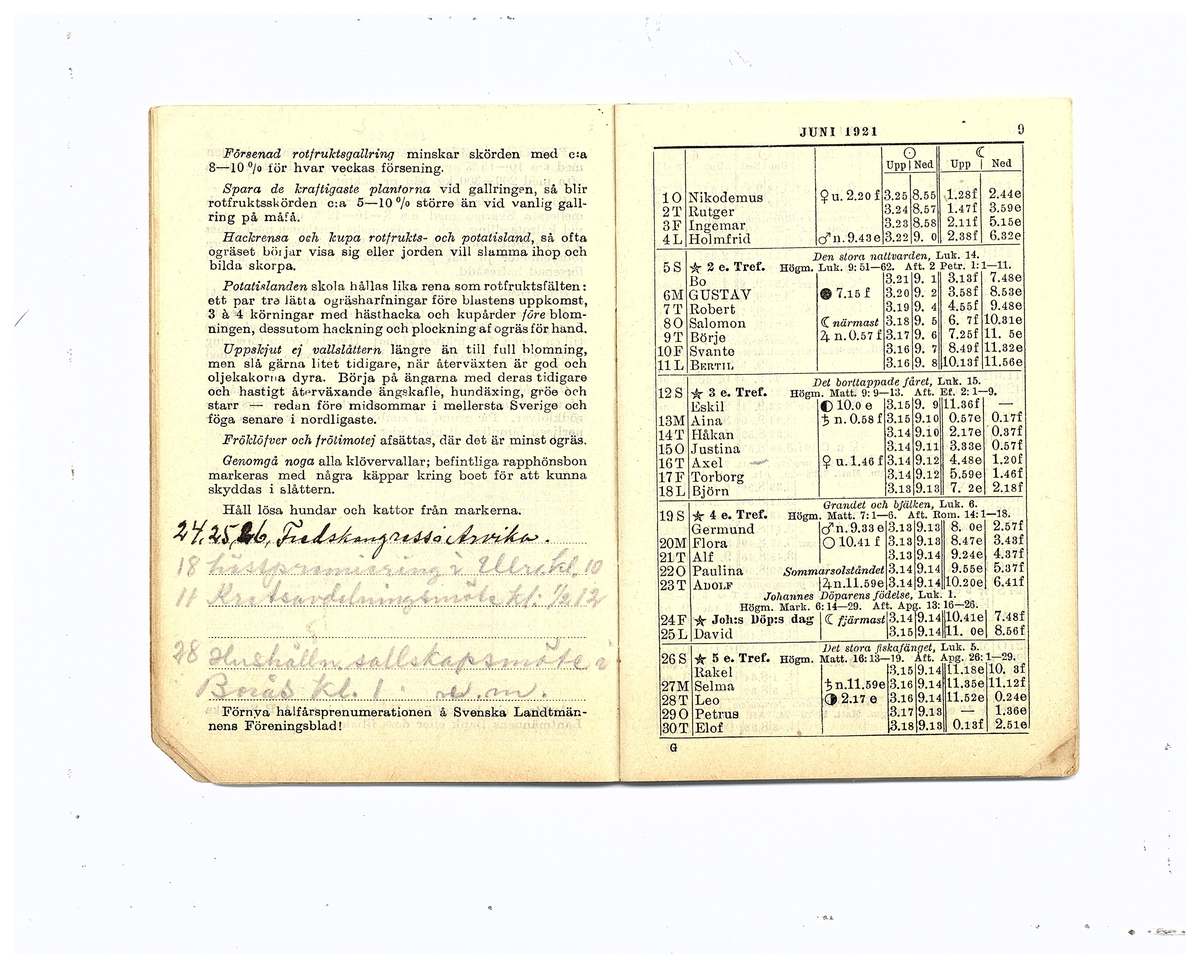 Försenad rotfruktsgallring minskar skörden med c:a
8—10 % för hvar veckas försening.
Spara de kraftigaste plantorna vid gallringen, så blir
rotfruktsskörden c:a 5—10 % större än vid vanlig gall-
ring på måfå.
Hackrensa och kupa rotfrukts- och potatisland, så ofta
ogräset börjar visa sig eller jorden vill slamma ihop och
bilda skorpa.
Potatislanden skola hållas lika rena som rotfruktsfälten:
ett par tre lätta ogräsharfningar före blastens uppkomst,
3 à 4 körningar med hästhacka och kupårder före blom-
ningen, dessutom hackning och plockning af ogräs för hand.
Uppskjut ej vallslåttern längre än till full blomning,
men slå gärna litet tidigare, när återväxten är god och
oljekakorna dyra. Börja på ängarna med deras tidigare
och hastigt återväxande ängskafle, hundäxing, gröe och
starr — redan före midsommar i mellersta Sverige och
föga senare i nordligaste.
Fröklöfver och frötimotej afsättas, där det är minst ogräs.
Genomgå noga alla klövervallar; befintliga rapphönsbon
markeras med några käppar kring boet för att kunna
skyddas i slåttern.
Håll lösa hundar och kattor från markerna.
24, 25, 26, Fredskongress i Arvika.
18 hästpremiering i Ulric. kl. 10
11 Kretsavdelningsmöte kl. 1/2 12
28 Hushålln. sällskapsmöte i
Borås kl. 1
Förnya halfårsprenumerationen å Svenska Landtmän-
nens Föreningsblad!
JUNI 1921 9
☉ ☾
Upp Ned Upp Ned
1 O Nikodemus ♀ u. 2.20 f 3.25 8.55 1.28f 2.44e
2 T Rutger 3.24 8.57 1.47f 3.59e
3 F Ingemar 3.23 8.58 2.11f 5.15e
4 L Holmfrid ♂ n. 9.43 e 3.22 9. 0 2.38f 6.32e
Den stora nattvarden, Luk. 14.
5 S ★ 2 e. Tref. Högm. Luk. 9: 51—62. Aft. 2 Petr. 1: 1—11.
Bo 3.21 9. 1 3.13f 7.48e
6 M GUSTAV ● 7.15 f 3.20 9. 2 3.58f 8.53e
7 T Robert 3.19 9. 4 4.55f 9.48e
8 O Salomon ☾ närmast 3.18 9. 5 6. 7f 10.31e
9 T Börje ♃ n. 0.57 f 3.17 9. 6 7.25f 11. 5e
10 F Svante 3.16 9. 7 8.49f 11.32e
11 L BERTIL 3.16 9. 8 10.13f 11.56e
Det borttappade fåret, Luk. 15.
12 S ★ 3 e. Tref. Högm. Matt. 9: 9—13. Aft. Ef. 2: 1—9.
Eskil ◐ 10.0 e 3.15 9. 9 11.36f —
13 M Aina ♄ n. 0.58 f 3.15 9.10 0.57e 0.17f
14 T Håkan 3.14 9.10 2.17e 0.37f
15 O Justina 3.14 9.11 3.33e 0.57f
16 T Axel ♀ u. 1.46 f 3.14 9.12 4.48e 1.20f
17 F Torborg 3.14 9.12 5.59e 1.46f
18 L Björn 3.13 9.13 7. 2e 2.18f
Grandet och bjälken, Luk. 6.
19 S ★ 4 e. Tref. Högm. Matt. 7: 1—6. Aft. Rom. 14: 1—18.
Germund ♂ n. 9.33 e 3.13 9.13 8. 0e 2.57f
20 M Flora ○ 10.41 f 3.13 9.13 8.47e 3.43f
21 T Alf 3.13 9.14 9.24e 4.37f
22 O Paulina Sommarsolståndet 3.14 9.14 9.55e 5.37f
23 T ADOLF ♃ n. 11.59e 3.14 9.14 10.20e 6.41f
Johannes Döparens födelse, Luk. 1.
Högm. Mark. 6: 14—29. Aft. Apg. 13: 16—26.
24 F ★ Joh:s Döp:s dag ☾ fjärmast 3.14 9.14 10.41e 7.48f
25 L David 3.15 9.14 11. 0e 8.56f
Det stora fiskafänget, Luk. 5.
26 S ★ 5 e. Tref. Högm. Matt. 16: 13—19. Aft. Apg. 26: 1—29.
Rakel 3.15 9.14 11.18e 10. 3f
27 M Selma ♄ n. 11.59e 3.16 9.14 11.35e 11.12f
28 T Leo ◑ 2.17 e 3.16 9.14 11.52e 0.24e
29 O Petrus 3.17 9.13 — 1.36e
30 T Elof 3.18 9.13 0.13f 2.51e
G